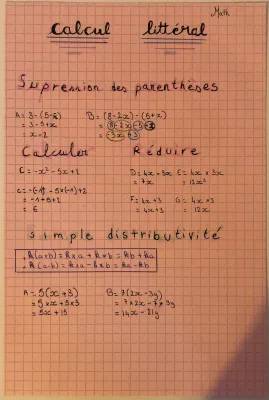 Math
Calcul littéral
Supression des parenthèses
A = 3-(5-x) B = (8-2x) - (5+x)
= 3-5+x = 8-2x-5-x
= x-2 = -3x+3
Calculer Réduire
C = -x²-5x+2 D = 4x+3x E = 4x × 3x
= 7x = 12x²
C = -(-1)² - 5×(-1)+2 F = 4x+3 G = 4x × 3
= -1+5+2 = 4x+3 = 12x
= 6
Simple distributivité
• k(a+b) = k×a + k×b = kb + ka
• k(a-b) = k×a - k×b = ka - kb
A = 5(x+3) B = 7(2x-3y)
= 5×x + 5×3 = 7×2x - 7×3y
= 5x + 15 = 14x - 21y